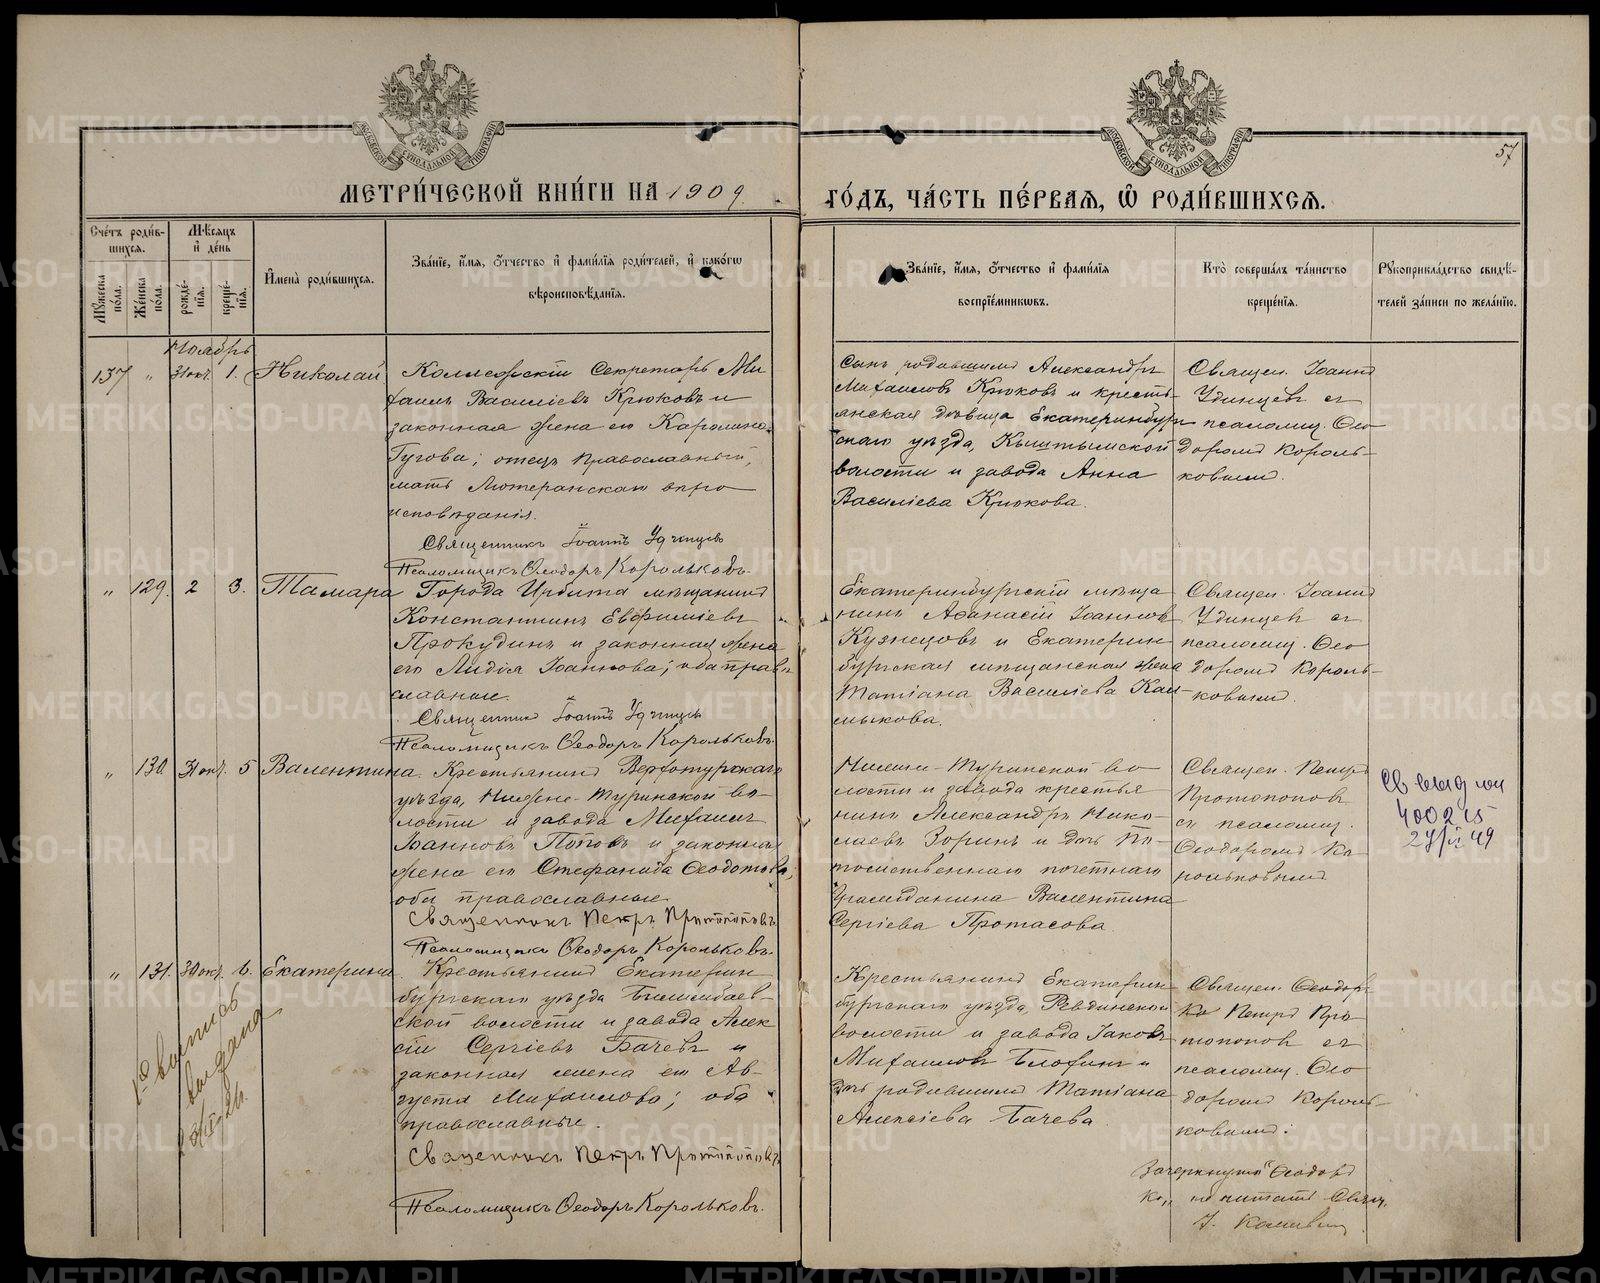 МЕТРИ́ЧЕСКОЙ КНИ́ГИ НА 1909
ГО́ДЪ, ЧА́СТЬ ПЕ́РВАѦ, Ѡ҆ РОДИ́ВШИХСѦ.
57
Сче́тъ роди́в-
шихсѧ.
Мꙋ́жеска по́ла.
Же́нска по́ла.
Мѣ́сѧцъ
и҆ де́нь
рожде́-
нїѧ.
креще́-
нїѧ.
И҆мена̀ роди́вшихсѧ.
Зва́нїе, и҆́мѧ, ѻ҆́тчество и҆ фами́лїѧ роди́телей, и҆ како́гѡ
вѣроисповѣ́данїѧ.
Зва́нїе, и҆́мѧ, ѻ҆́тчество и҆ фами́лїѧ
воспрїе́мниковъ.
Кто̀ соверша́лъ та́инство
креще́нїѧ.
Рꙋкоприкла́дство свидѣ́-
телей за́писи по жела́нїю.
Ноябрь
137 " 31 окт. 1. Николай
Коллежскій Секретарь Ми
хаилъ Василіевъ Крюковъ и
законная жена его Каролина
Гугова; отецъ православный,
мать Лютеранскаго вѣро
исповѣданія.
Священникъ Іоаннъ Удинцевъ
Псаломщикъ Ѳеодоръ Корольковъ.
Сынъ родившаго Александръ
Михаиловъ Крюковъ и кресть-
янская дѣвица Екатеринбур
скаго уѣзда, Кыштымской
волости и завода Анна
Василіева Крюкова.
Священ. Іоаннъ
Удинцевъ съ
псаломщ. Ѳео
доромъ Король-
ковымъ.
" 129. 2 3. Тамара
Города Ирбита мѣщанинъ
Константинъ Евфиміевъ
Прокудинъ и законная жена
его Лидія Іоаннова; оба право
славные.
Священникъ Іоаннъ Удинцевъ
Псаломщикъ Ѳеодоръ Корольковъ.
Екатеринбургскій мѣща
нинъ Аѳанасій Іоанновъ
Кузнецовъ и Екатерин
бургская мѣщанская жена
Татіана Василіева Кал-
мыкова.
Священ. Іоаннъ
Удинцевъ съ
псаломщ. Ѳео
доромъ Король-
ковымъ.
" 130. 31 окт. 5 Валентина.
Крестьянинъ Верхотурскаго
уѣзда, Нижне-Туринской во-
лости и завода Михаилъ
Іоанновъ Поповъ и законная
жена его Стефанида Ѳеодотова,
оба православные.
Священникъ Петръ Протопоповъ.
Псаломщикъ Ѳеодоръ Корольковъ.
Нижне-Туринской во-
лости и завода крестья
нинъ Александръ Нико-
лаевъ Зоринъ и дочь По-
томственнаго почетнаго
Гражданина Валентина
Сергіева Протасова.
Священ. Петръ
Протопоповъ
съ псаломщ.
Ѳеодоромъ Ко-
рольковымъ
40025
" 131. 30 окт. 6. Екатерина.
Крестьянинъ Екатерин
бургскаго уѣзда Билимбаев-
ской волости и завода Алек
сій Сергіевъ Бачевъ и
законная жена его Ав-
густа Михаилова; оба
православные.
Священникъ Петръ Протопоповъ
Псаломщикъ Ѳеодоръ Корольковъ.
Крестьянинъ Екатерин
бургскаго уѣзда, Ревдинской
волости и завода Іаковъ
Михаиловъ Блохинъ и
дочь родившаго Татіана
Алексіева Бачева.
Священ. Ѳеодор
ко Петръ Про
топоповъ съ
псаломщ. Ѳео
доромъ Король-
ковымъ.
Зачеркнутое "Ѳеодор
ко" не читать. Свящ.
выдана